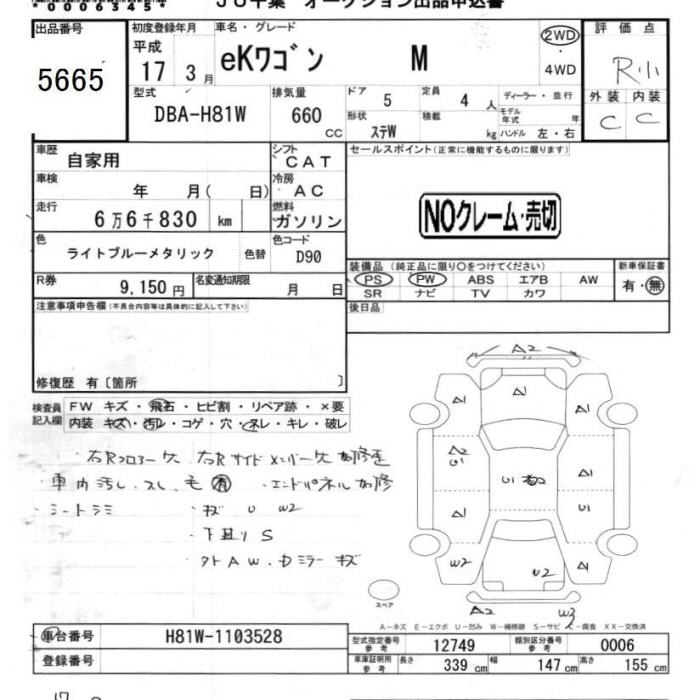 出品番号
5665
初度登録年月
平成
17 3月
車名・グレード
eKワゴン M
2WD
・
4WD
評価点
R小
外装 内装
C C
型式
DBA-H81W
排気量
660 cc
ドア 5
定員 4 人
形状 ステW
積載 kg
ディーラー・並行
モデル年式 年
ハンドル 左・右
車歴 自家用
シフト CAT
車検 年 月( 日)
冷房 AC
走行 6万6千830 km
燃料 ガソリン
色 ライトブルーメタリック 色替
色コード D90
R券 9,150円
名変通知期限 月 日
セールスポイント(正常に機能するものに限ります)
NOクレーム・売切
装備品 (純正品に限り○をつけてください)
新車保証書
PS PW ABS エアB AW
有・無
SR ナビ TV カワ
後日品
注意事項申告欄(不具合内容等は具体的に記入して下さい)
修復歴 有〔箇所 〕
検査員記入欄
FW キズ・飛石・ヒビ割・リペア跡・×要
内装 キズ・汚レ・コゲ・穴・スレ・キレ・破レ
・車内汚し、スレ、毛 有 ・エンドパネル
・シートシミ ・キズ U W2
・下廻り S
ドアミラー キズ
A2
A1 A1 A1
A2
U1
A1
U1
A1 U1
W2 U2 A1
A2 W2
スペア
A-キズ E-エクボ U-凹み W-補修跡 S-サビ C-腐食 XX-交換済
車台番号 H81W-1103528
登録番号
型式指定番号 参考 12749
類別区分番号 参考 0006
車庫証明用 参考 長さ 339 cm 幅 147 cm 高さ 155 cm